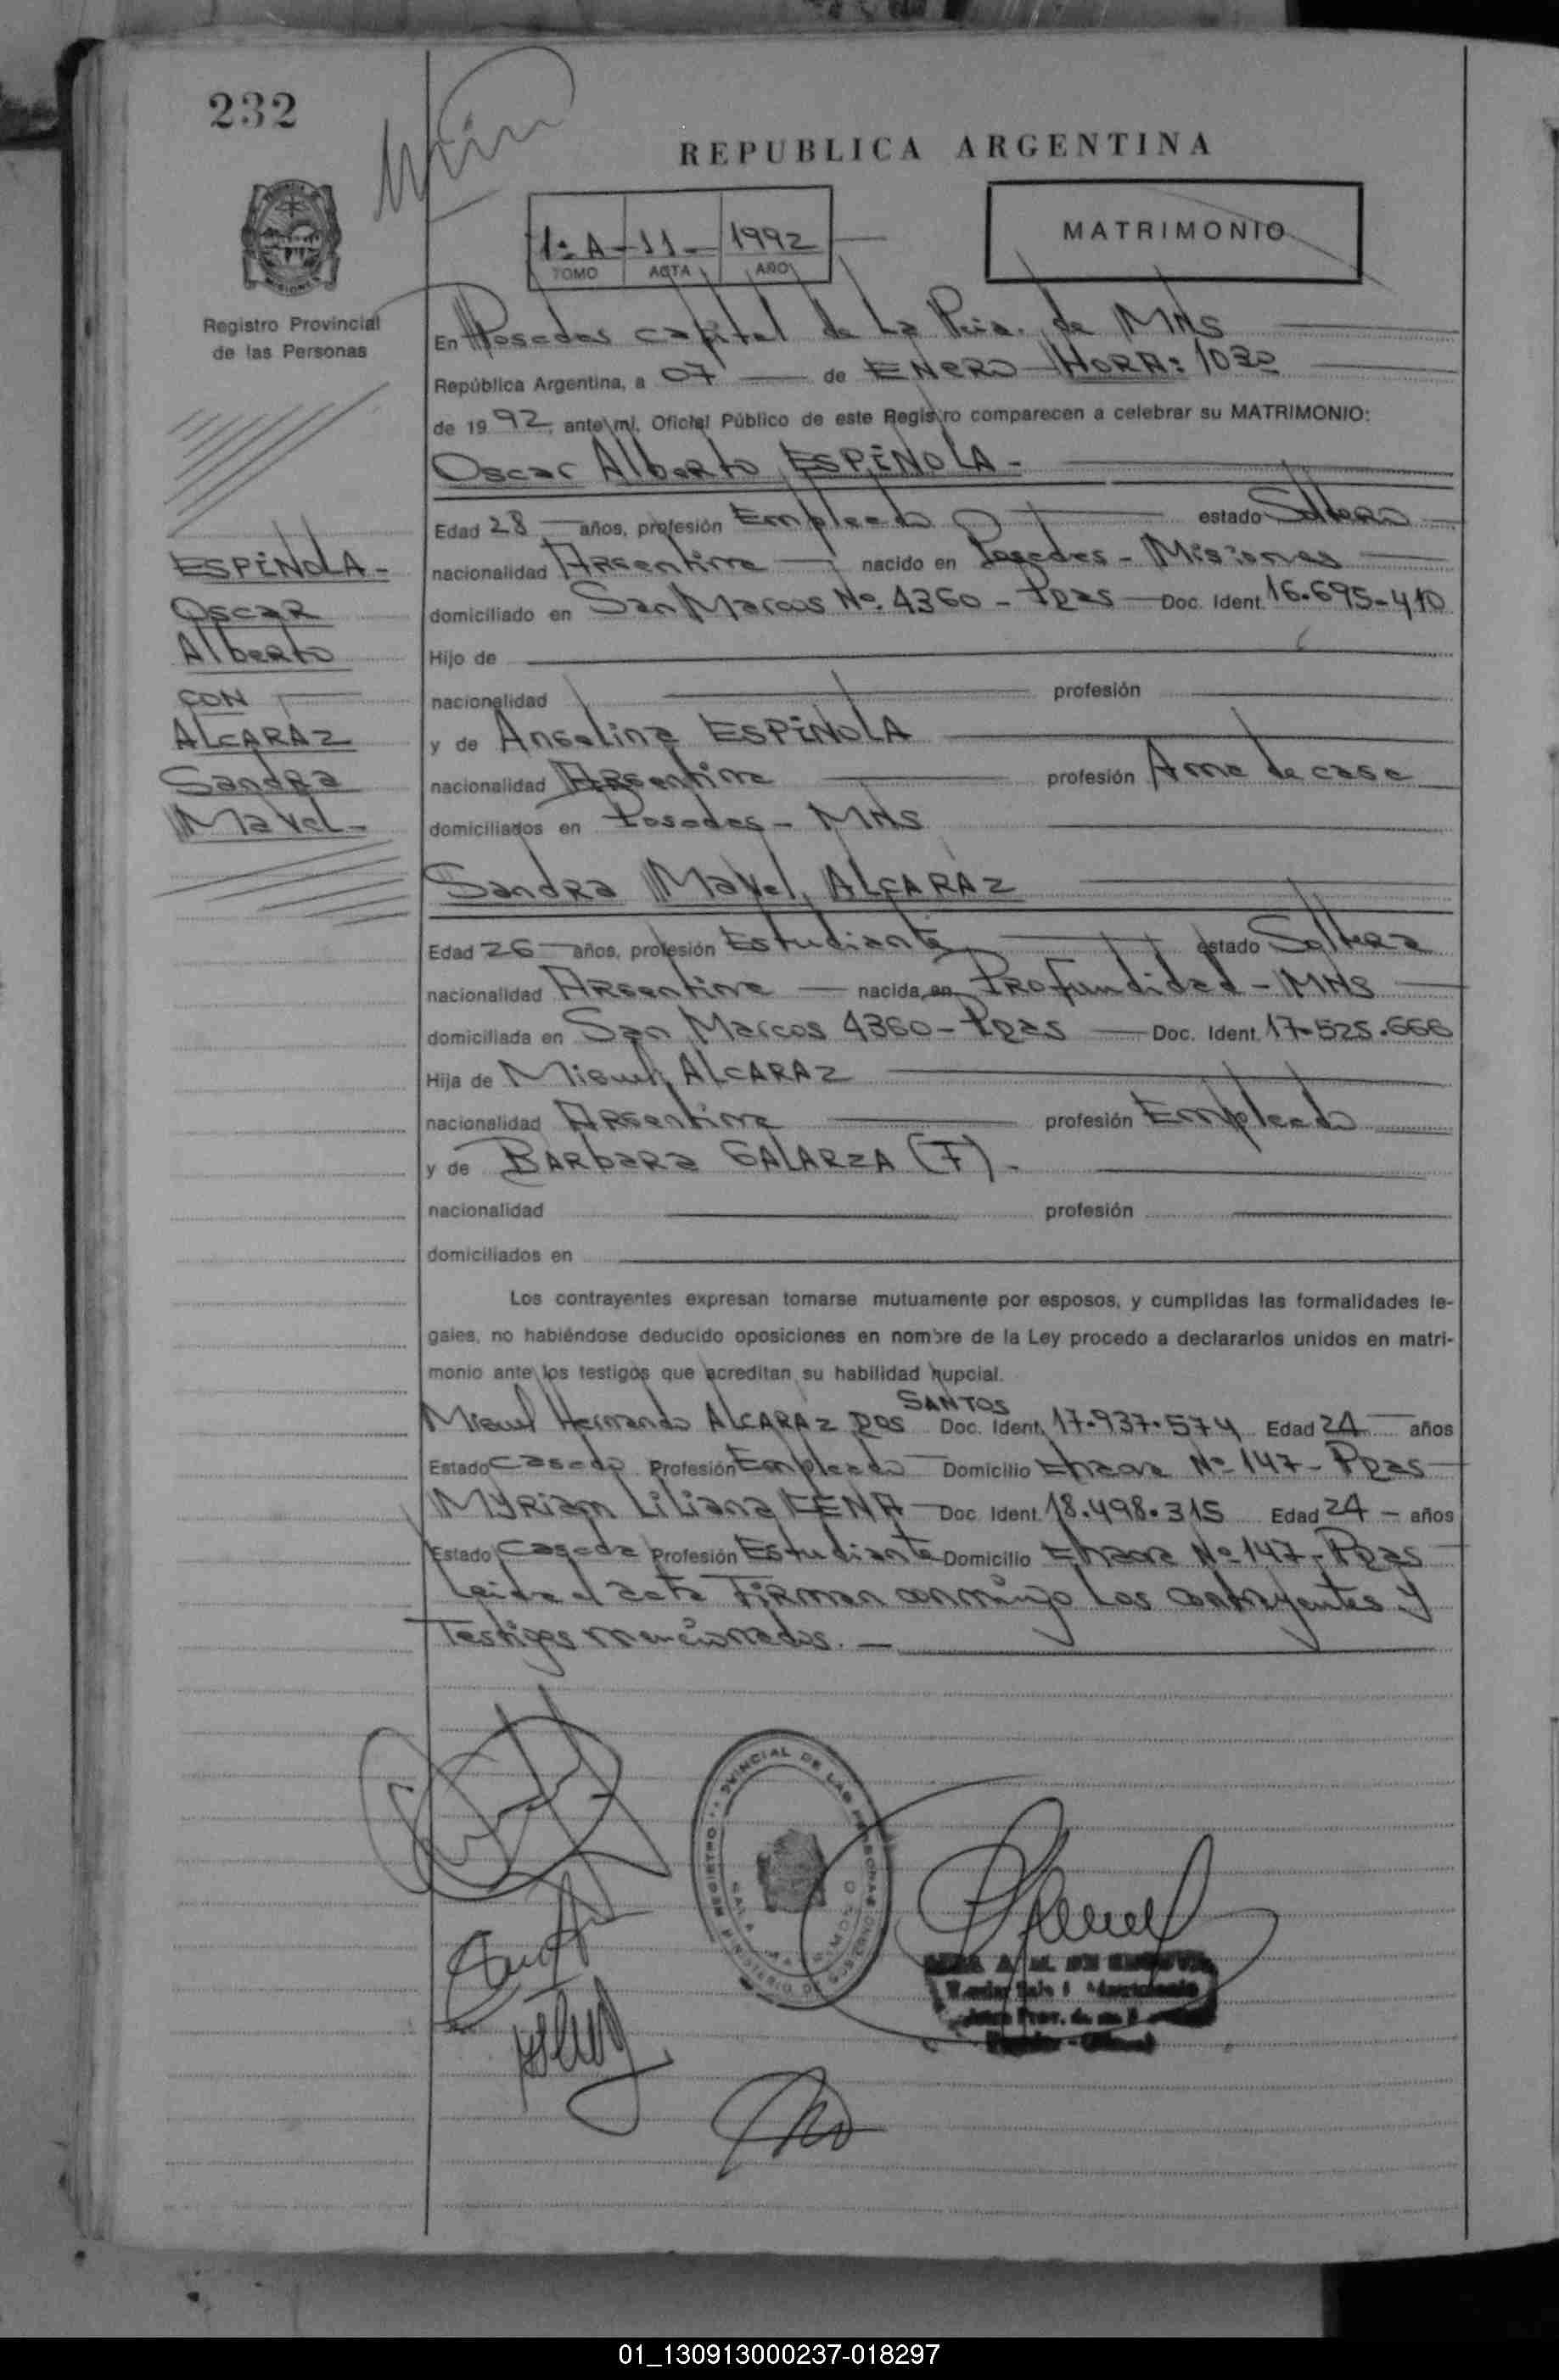 232
REPUBLICA ARGENTINA
1º A - 11 - 1992
TOMO ACTA AÑO
MATRIMONIO
Registro Provincial
de las Personas
En Posadas capital de La Pcia. de MNS
República Argentina, a 07 de ENERO HORA: 1030
de 1992, ante mí, Oficial Público de este Registro comparecen a celebrar su MATRIMONIO:
Oscar Alberto ESPINOLA -
Edad 28 años, profesión Empleado estado Soltero
nacionalidad Argentina nacido en Posadas - Misiones
domiciliado en San Marcos Nº. 4360 - Pdas Doc. Ident. 16.695-410
Hijo de
nacionalidad profesión
y de Angelina ESPINOLA
nacionalidad Argentina profesión Ama de casa
domiciliados en Posadas - MNS
ESPINOLA -
Oscar
Alberto
CON
ALCARAZ
Sandra
Mavel -
Sandra Mavel, ALCARAZ
Edad 26 años, profesión Estudiante estado Soltera
nacionalidad Argentina nacida en Profundidad - MNS
domiciliada en San Marcos 4360 - Pdas Doc. Ident. 17-525.666
Hija de Miguel, ALCARAZ
nacionalidad Argentina profesión Empleado
y de Barbara GALARZA (F) -
nacionalidad profesión
domiciliados en
Los contrayentes expresan tomarse mutuamente por esposos, y cumplidas las formalidades le-
gales, no habiéndose deducido oposiciones en nombre de la Ley procedo a declararlos unidos en matri-
monio ante los testigos que acreditan su habilidad nupcial.
Miguel Hernando ALCARAZ DOS SANTOS Doc. Ident. 17.937.574 Edad 24 años
Estado Casado Profesión Empleado Domicilio Nº 147 - Pdas
Myriam Liliana Doc. Ident. 18.498.315 Edad 24 - años
Estado Casada Profesión Estudiante Domicilio Nº 147 - Pdas
Leida el acta Firman conmigo Los contrayentes y
Testigos mencionados. -
REGISTRO PROVINCIAL DE LAS PERSONAS
MINISTERIO DE GOBIERNO
01_130913000237-018297